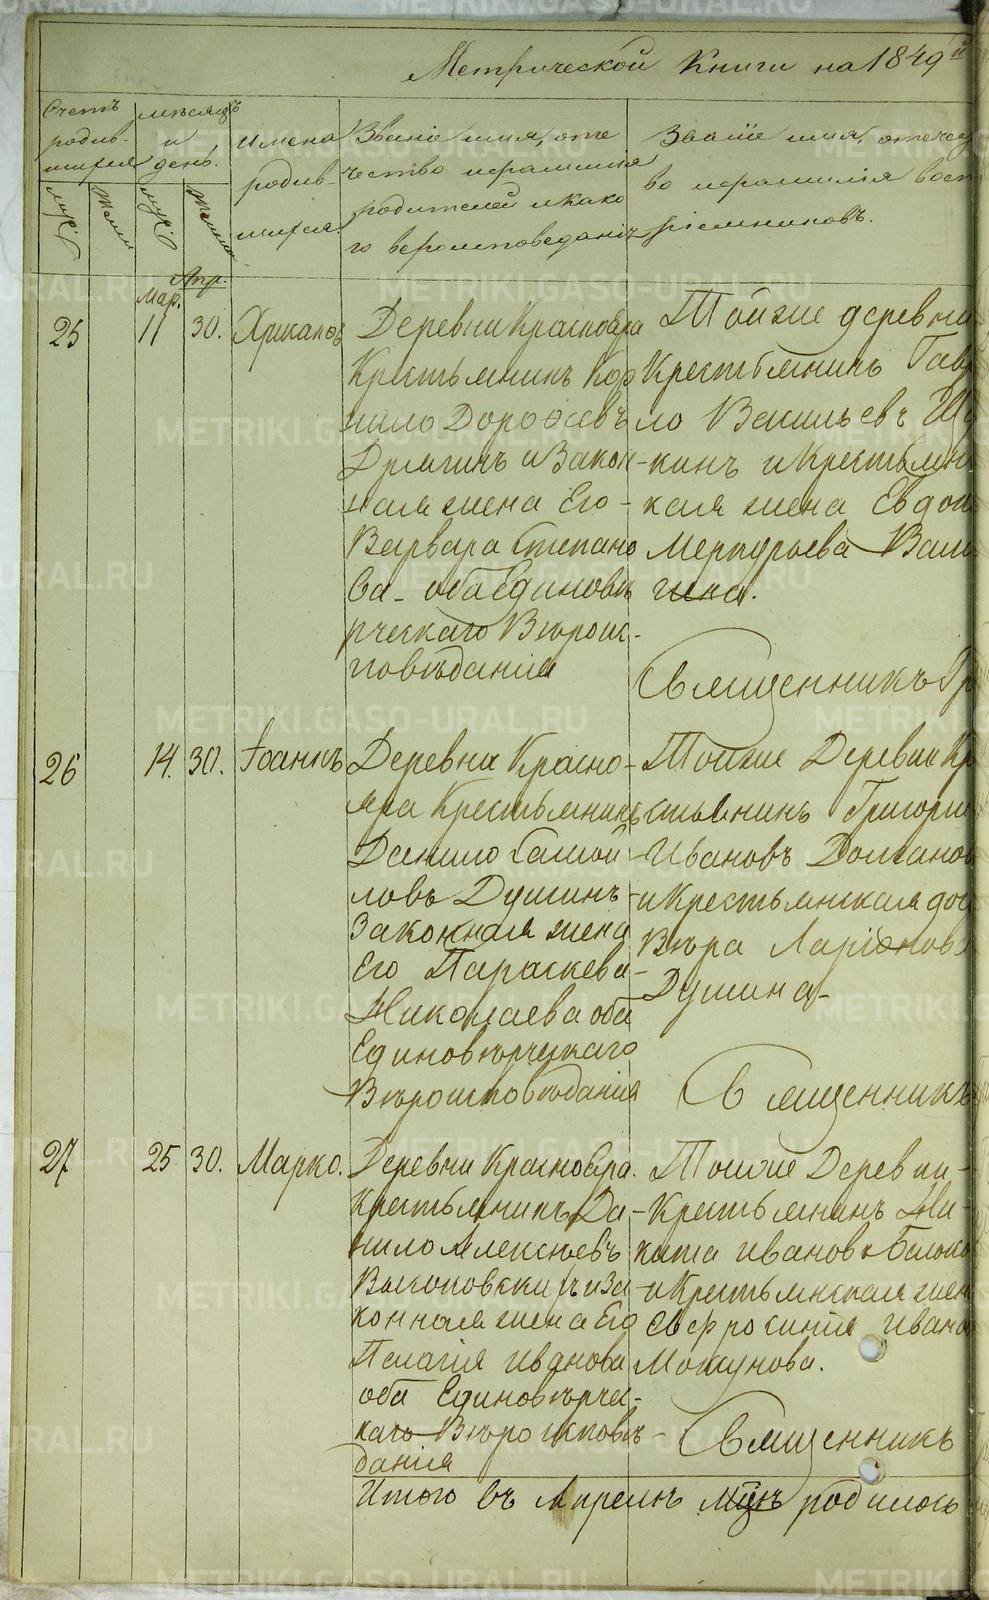 Метрической Книги на 1849й
Счетъ родив-шихся
муж: женс
мѣсяцъ и день.
муж: женск
имена родив-шихся.
Званіе имя, оте
чество ифамилія
родителей икако
го вероисповеданія
Званіе имя, отечес
во ифамилія восп
ріемниковъ.
Мар. Апр.
25 11 30.
Деревни Краснояра
Крестьянинъ Кор
нило Дороѳеевъ
и Закон-
ная жена Его -
Варвара Степано
ва - оба Единовѣ
рческаго Вѣроис-
повѣданія
Тойже деревни
Крестьянинъ Гаври
ло Васильевъ
кинъ и Крестьянс
кая жена Евдок
Меркурьева
гина.
Священникъ Гр
26 14. 30. Іоаннъ
Деревни Красно-
яра Крестьянинъ
Данило Самой
ловъ Душинъ -
Законная жена
Его Параскева -
Николаева оба
Единовѣрческаго
Вѣроисповѣданія
Тойже Деревни Кр
стьянинъ Григорій
Ивановъ Долганов
и Крестьянская доч
Вѣра Ларіонова
Душина -
Священникъ
27 25 30. Марко.
Деревни Краснояра.
Крестьянинъ Да-
нило Алексѣевъ
Высоковскихъ иЗа-
конная жена Его
Пелагія Иванова
оба Единовѣрчес-
каго Вѣроисповѣ-
данія
Тойже Деревни -
Крестьянинъ Ни-
кита Ивановъ Белоко
и Крестьянская жен
Евфросинія Ивано
Мокунова.
Священникъ
Итого въ Апрелѣ Мцѣ родилось
METRIKI.GASO-URAL.RU